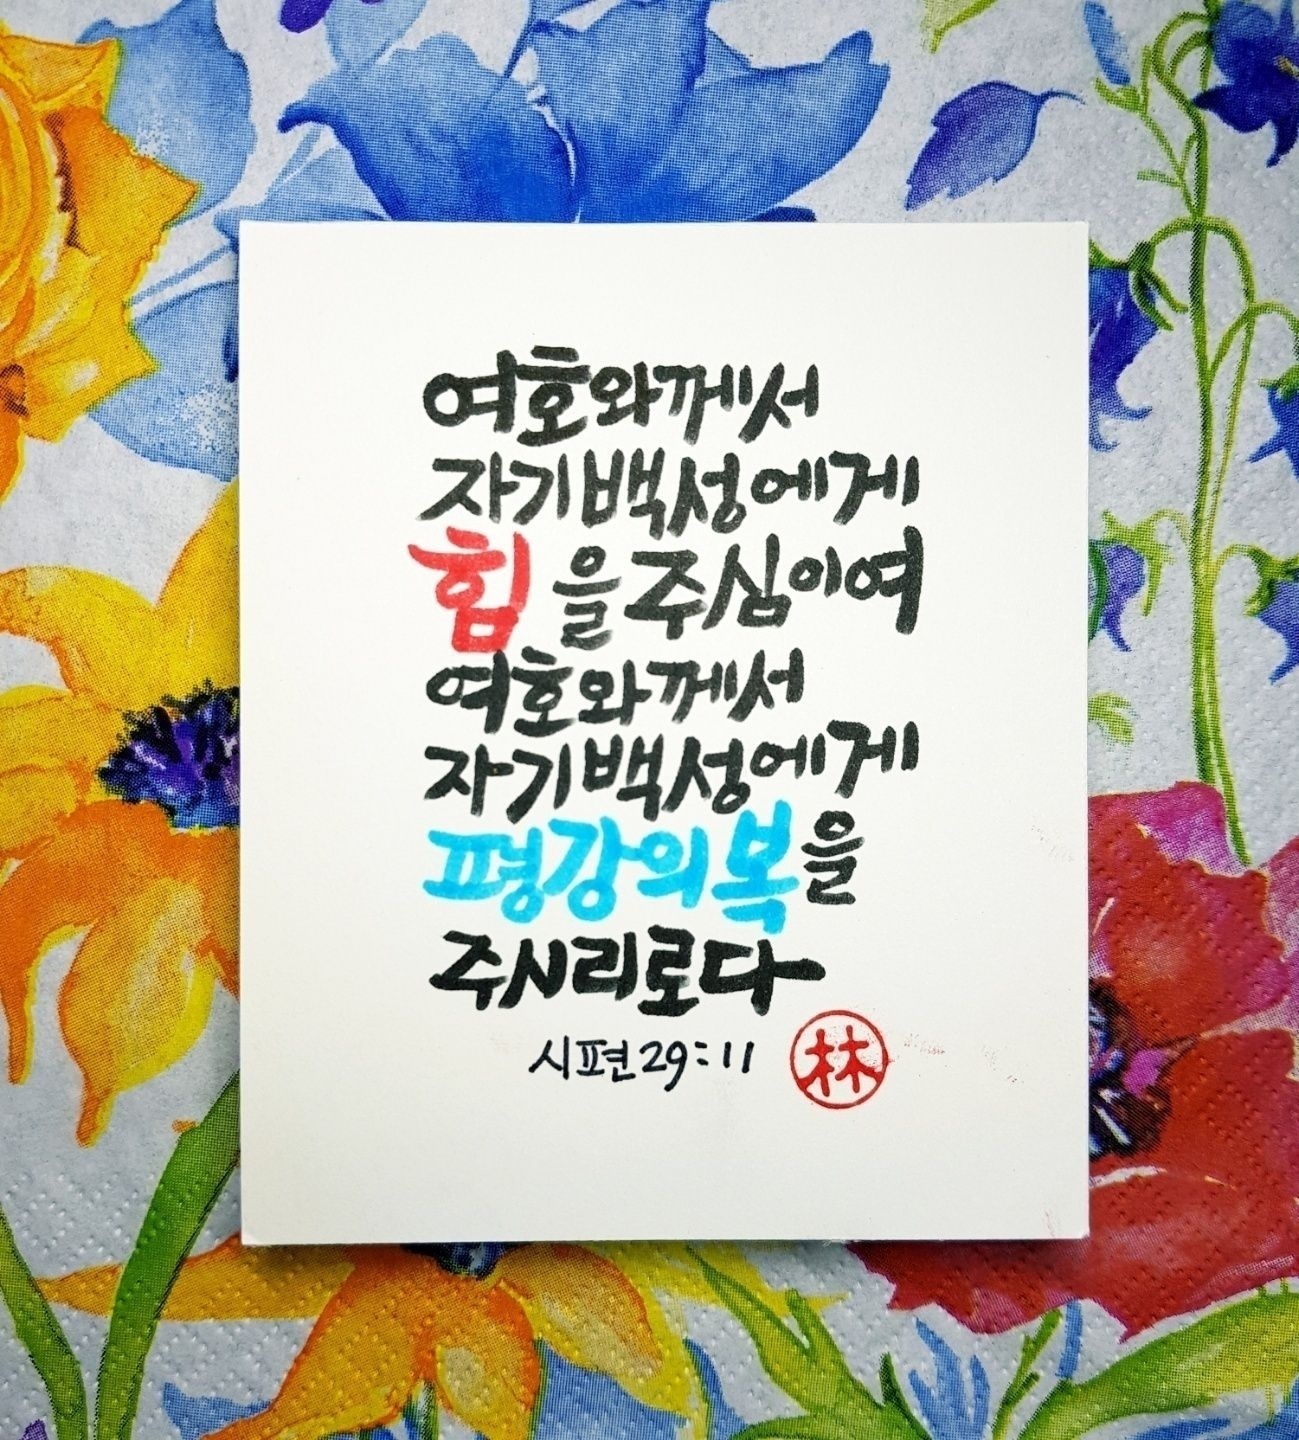 여호와께서
자기백성에게
힘을 주심이여
여호와께서
자기백성에게
평강의 복을
주시리로다
시편 29:11
林